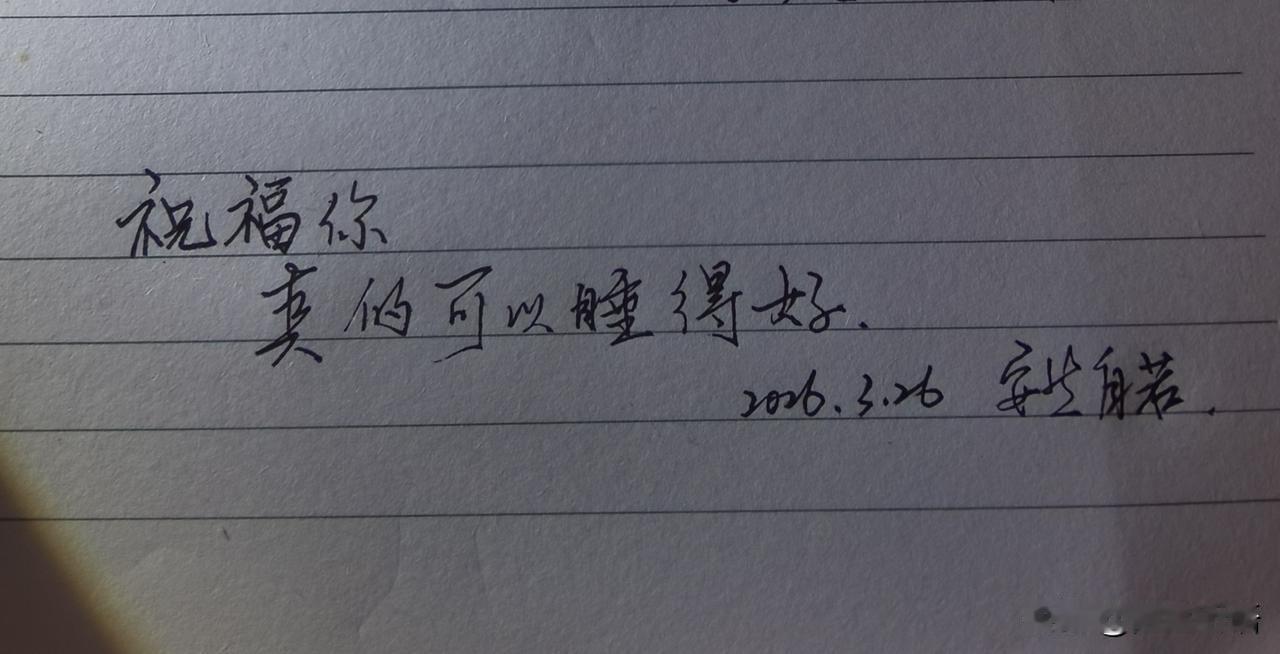 祝福你
真的可以睡得好.
2026.3.26 安然自若.